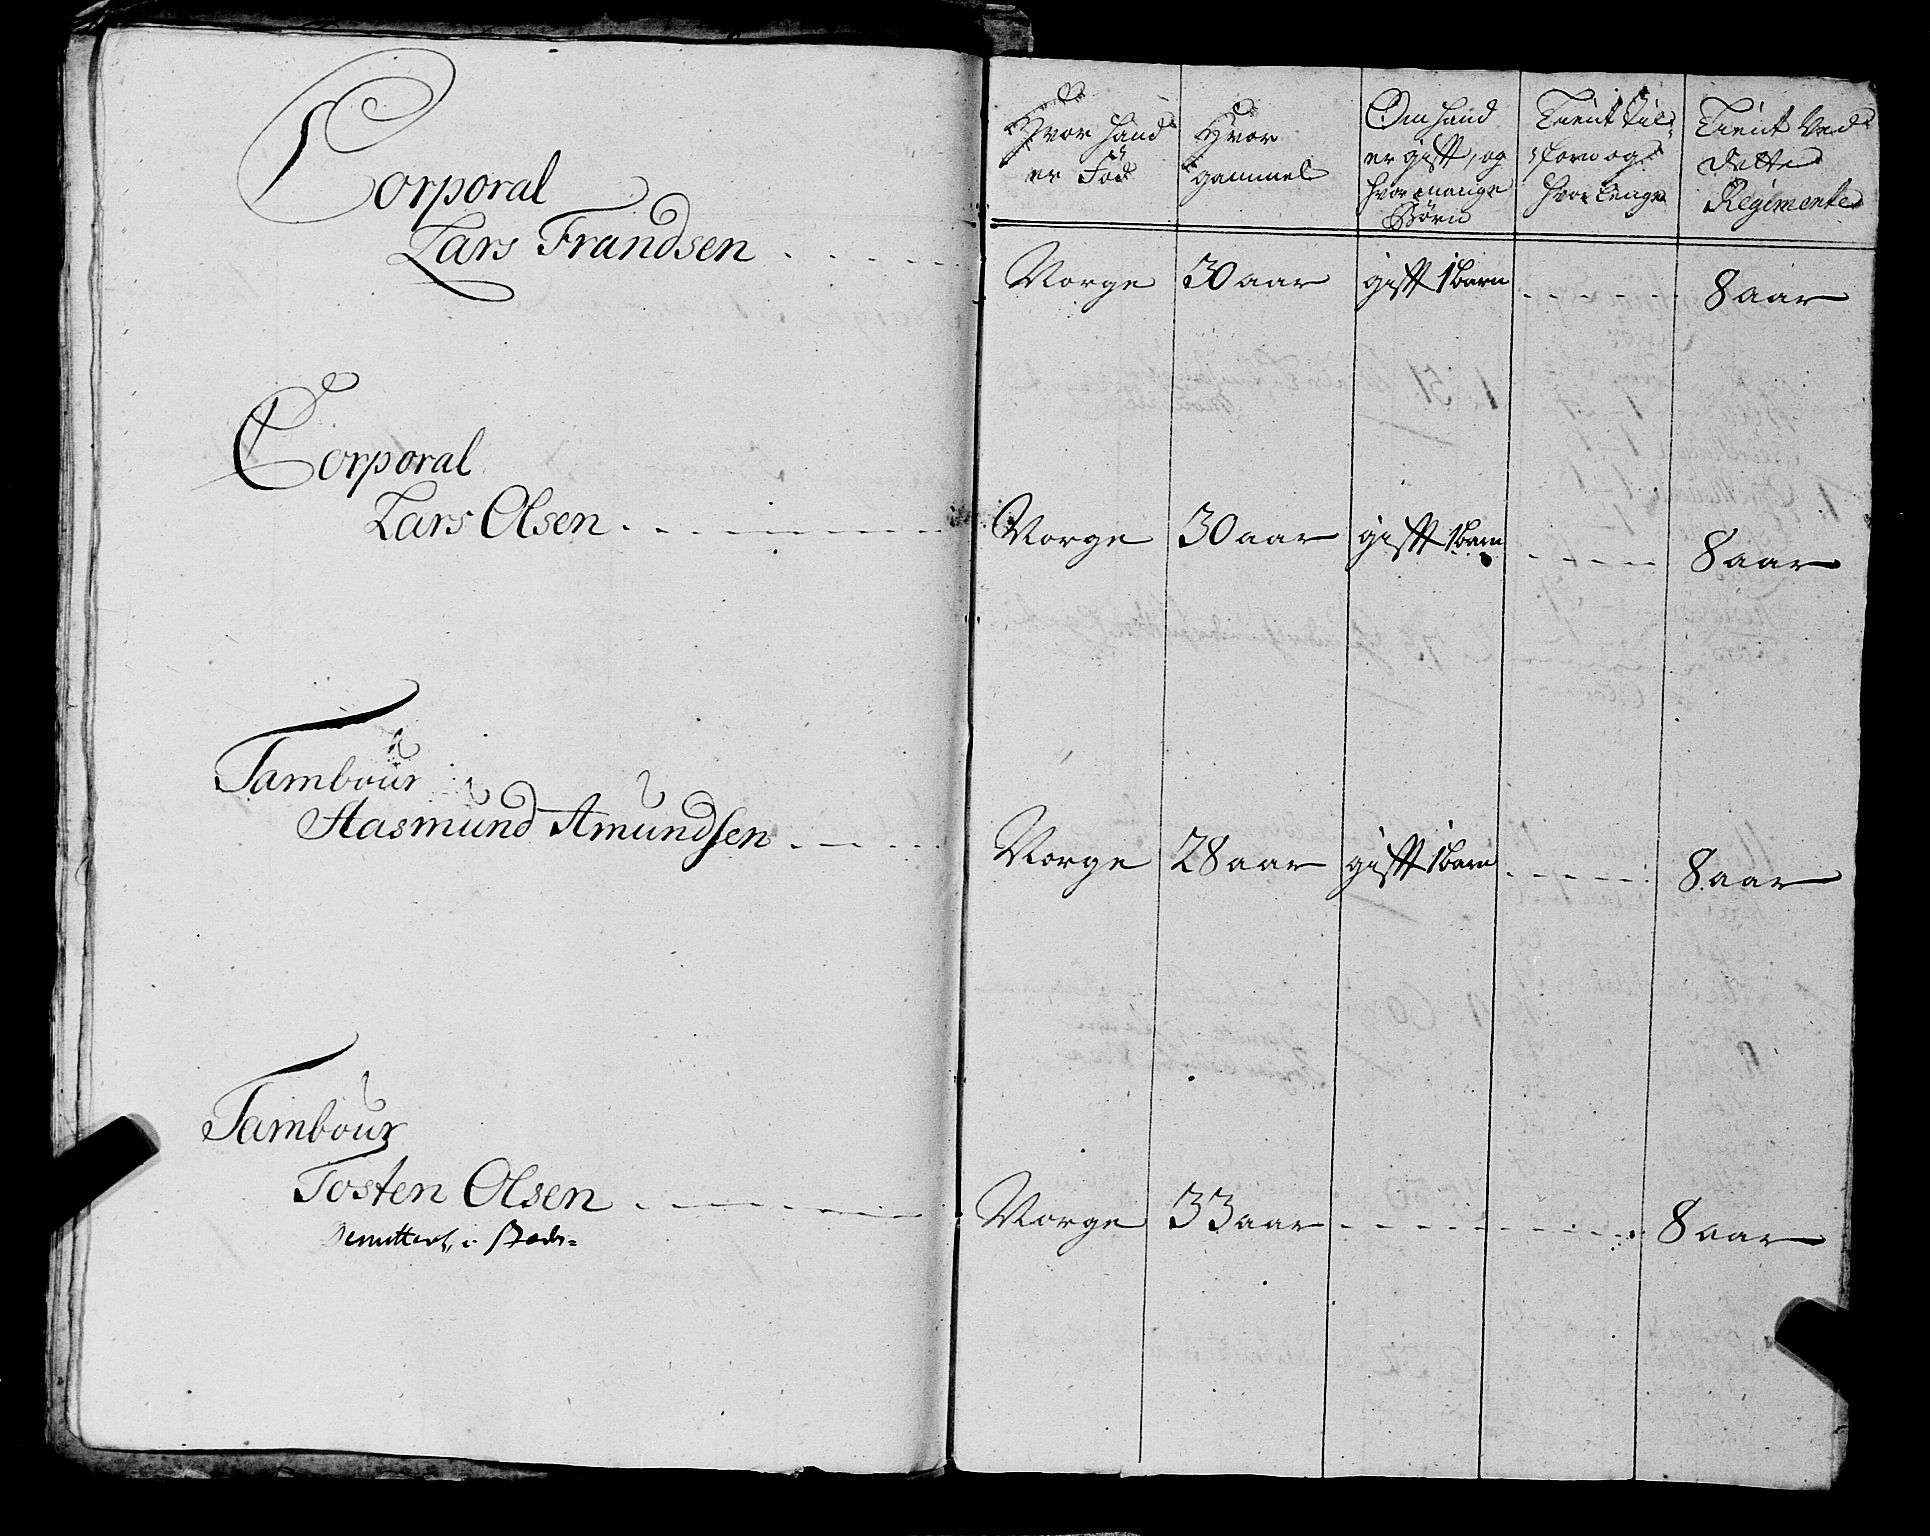 Corporal
Lars Frandsen
Corporal
Lars Olsen
Tambour
Aasmund Amundsen
Tambour
Tosten Olsen
Hvor hand
er Föd
Hvor
gammel
Om hand
er gifft, og
hvor mange
Börn
Tient til-
forn og
hvor lenge
Tient Ved
dette
Regimente
Norge 30 aar gifft 1 barn 8 aar
Norge 30 aar gifft 1 barn 8 aar
Norge 28 aar gifft 1 barn 8 aar
Norge 33 aar 8 aar